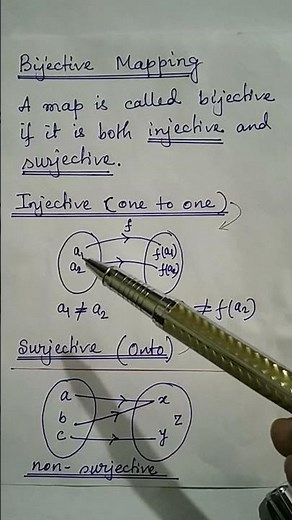 Bijective Mapping
A map is called bijective
if it is both injective and
surjective.
Injective (one to one)
f
a₁ f(a₁)
a₂ f(a₂)
a₁ ≠ a₂ ≠ f(a₂)
Surjective (Onto)
a x
b z
c y
non-surjective